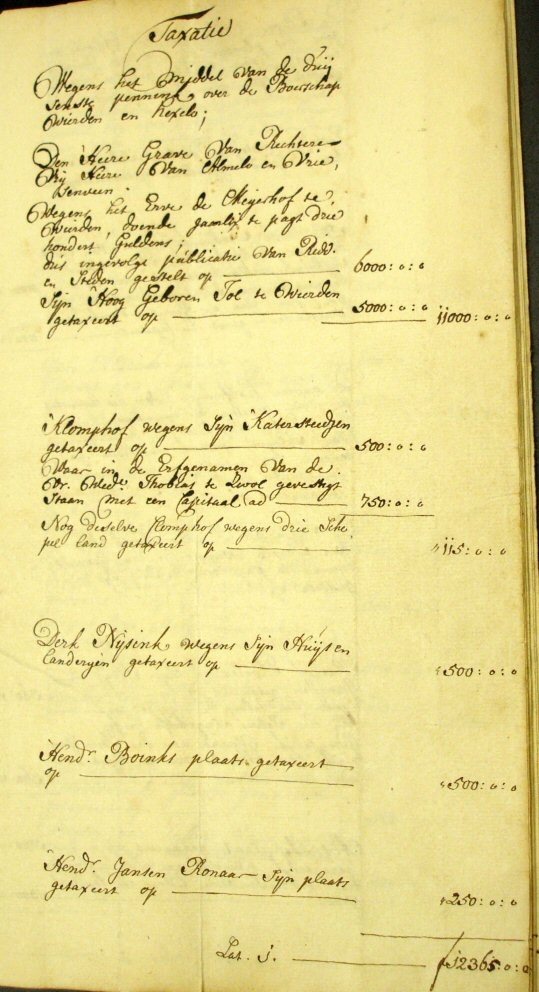 Taxatie
Wegens het middel van de duij
senste penning over de Boerschap
Wierden en hexelo;
Den Heere Grave Van Rechtere
Vrij Heere Van Almelo en Vrie,
senveen.
Wegens het Erve de Meijerhof te,
Wierden, doende jaarlix te pagt drie
hondert Guldens;
dus ingevolge publicatie Van Ridd.
en Steden gestelt op — 6000: 0: 0
Sijn Hoog Geboren Tol te Wierden
getaxeert op — 5000: 0: 0 11000: 0: 0
Klomphof wegens Sijn Katersteedjen
getaxeert op — 500: 0: 0
Waar in de Erfgenamen Van de
Vr. Wede. Thobias te Zwol gevestigt
Staan met een Capitaal ad — 750: 0: 0
Nog deselve Clomphof wegens drie Sche
pel land getaxeert op — 115: 0: 0
Derk Nijsink wegens Sijn Huijs en
Landerijen getaxeert op — 500: 0: 0
Hendr. Boinks plaats getaxeert
op — 500: 0: 0
Hendr. Jansen Ronaar Sijn plaats
getaxeert op — 250: 0: 0
Lat. 1. — f 12365: 0: 0